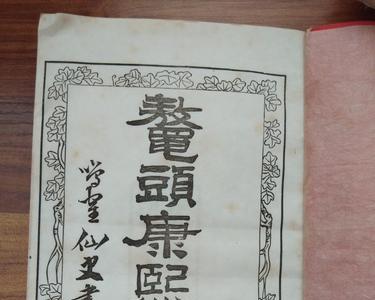 鼇頭康熙
仙史書